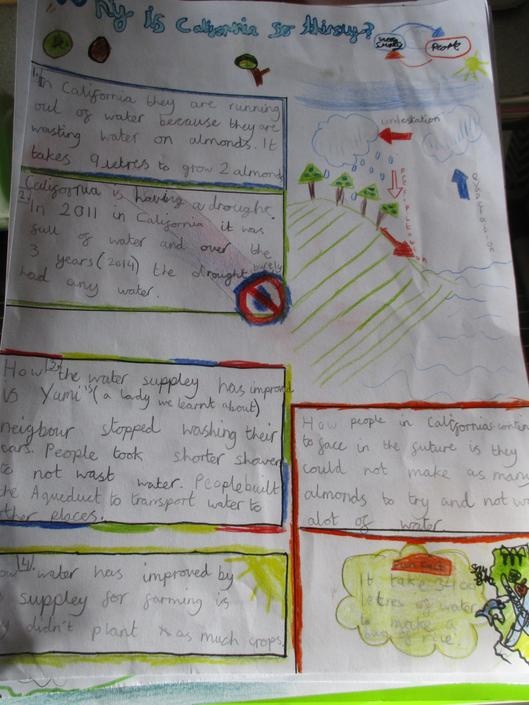 Why Is California So thirsty?
People
1. In California they are running
out of water because they are
wasting water on almonds. It
takes 9 letres to grow 2 almond
2. California is having a drought.
In 2011 in California it was
full of water and over the
3 years (2014) the drought barely
had any water.
3.
How the water suppley has improved
is Yumi's (a lady we learnt about)
neigbour stopped washing their
cars. People took shorter shower
to not wast water. People built
the Aqueduct to transport water to
other places.
4.
How water has improved by
suppley for farming is
didn't plant as much crops
How people in Californias contin
to face in the future is they
could not make as many
almonds to try and not w
alot of water
Fun Fact
It take
letres of water
to make a
bag of rice!